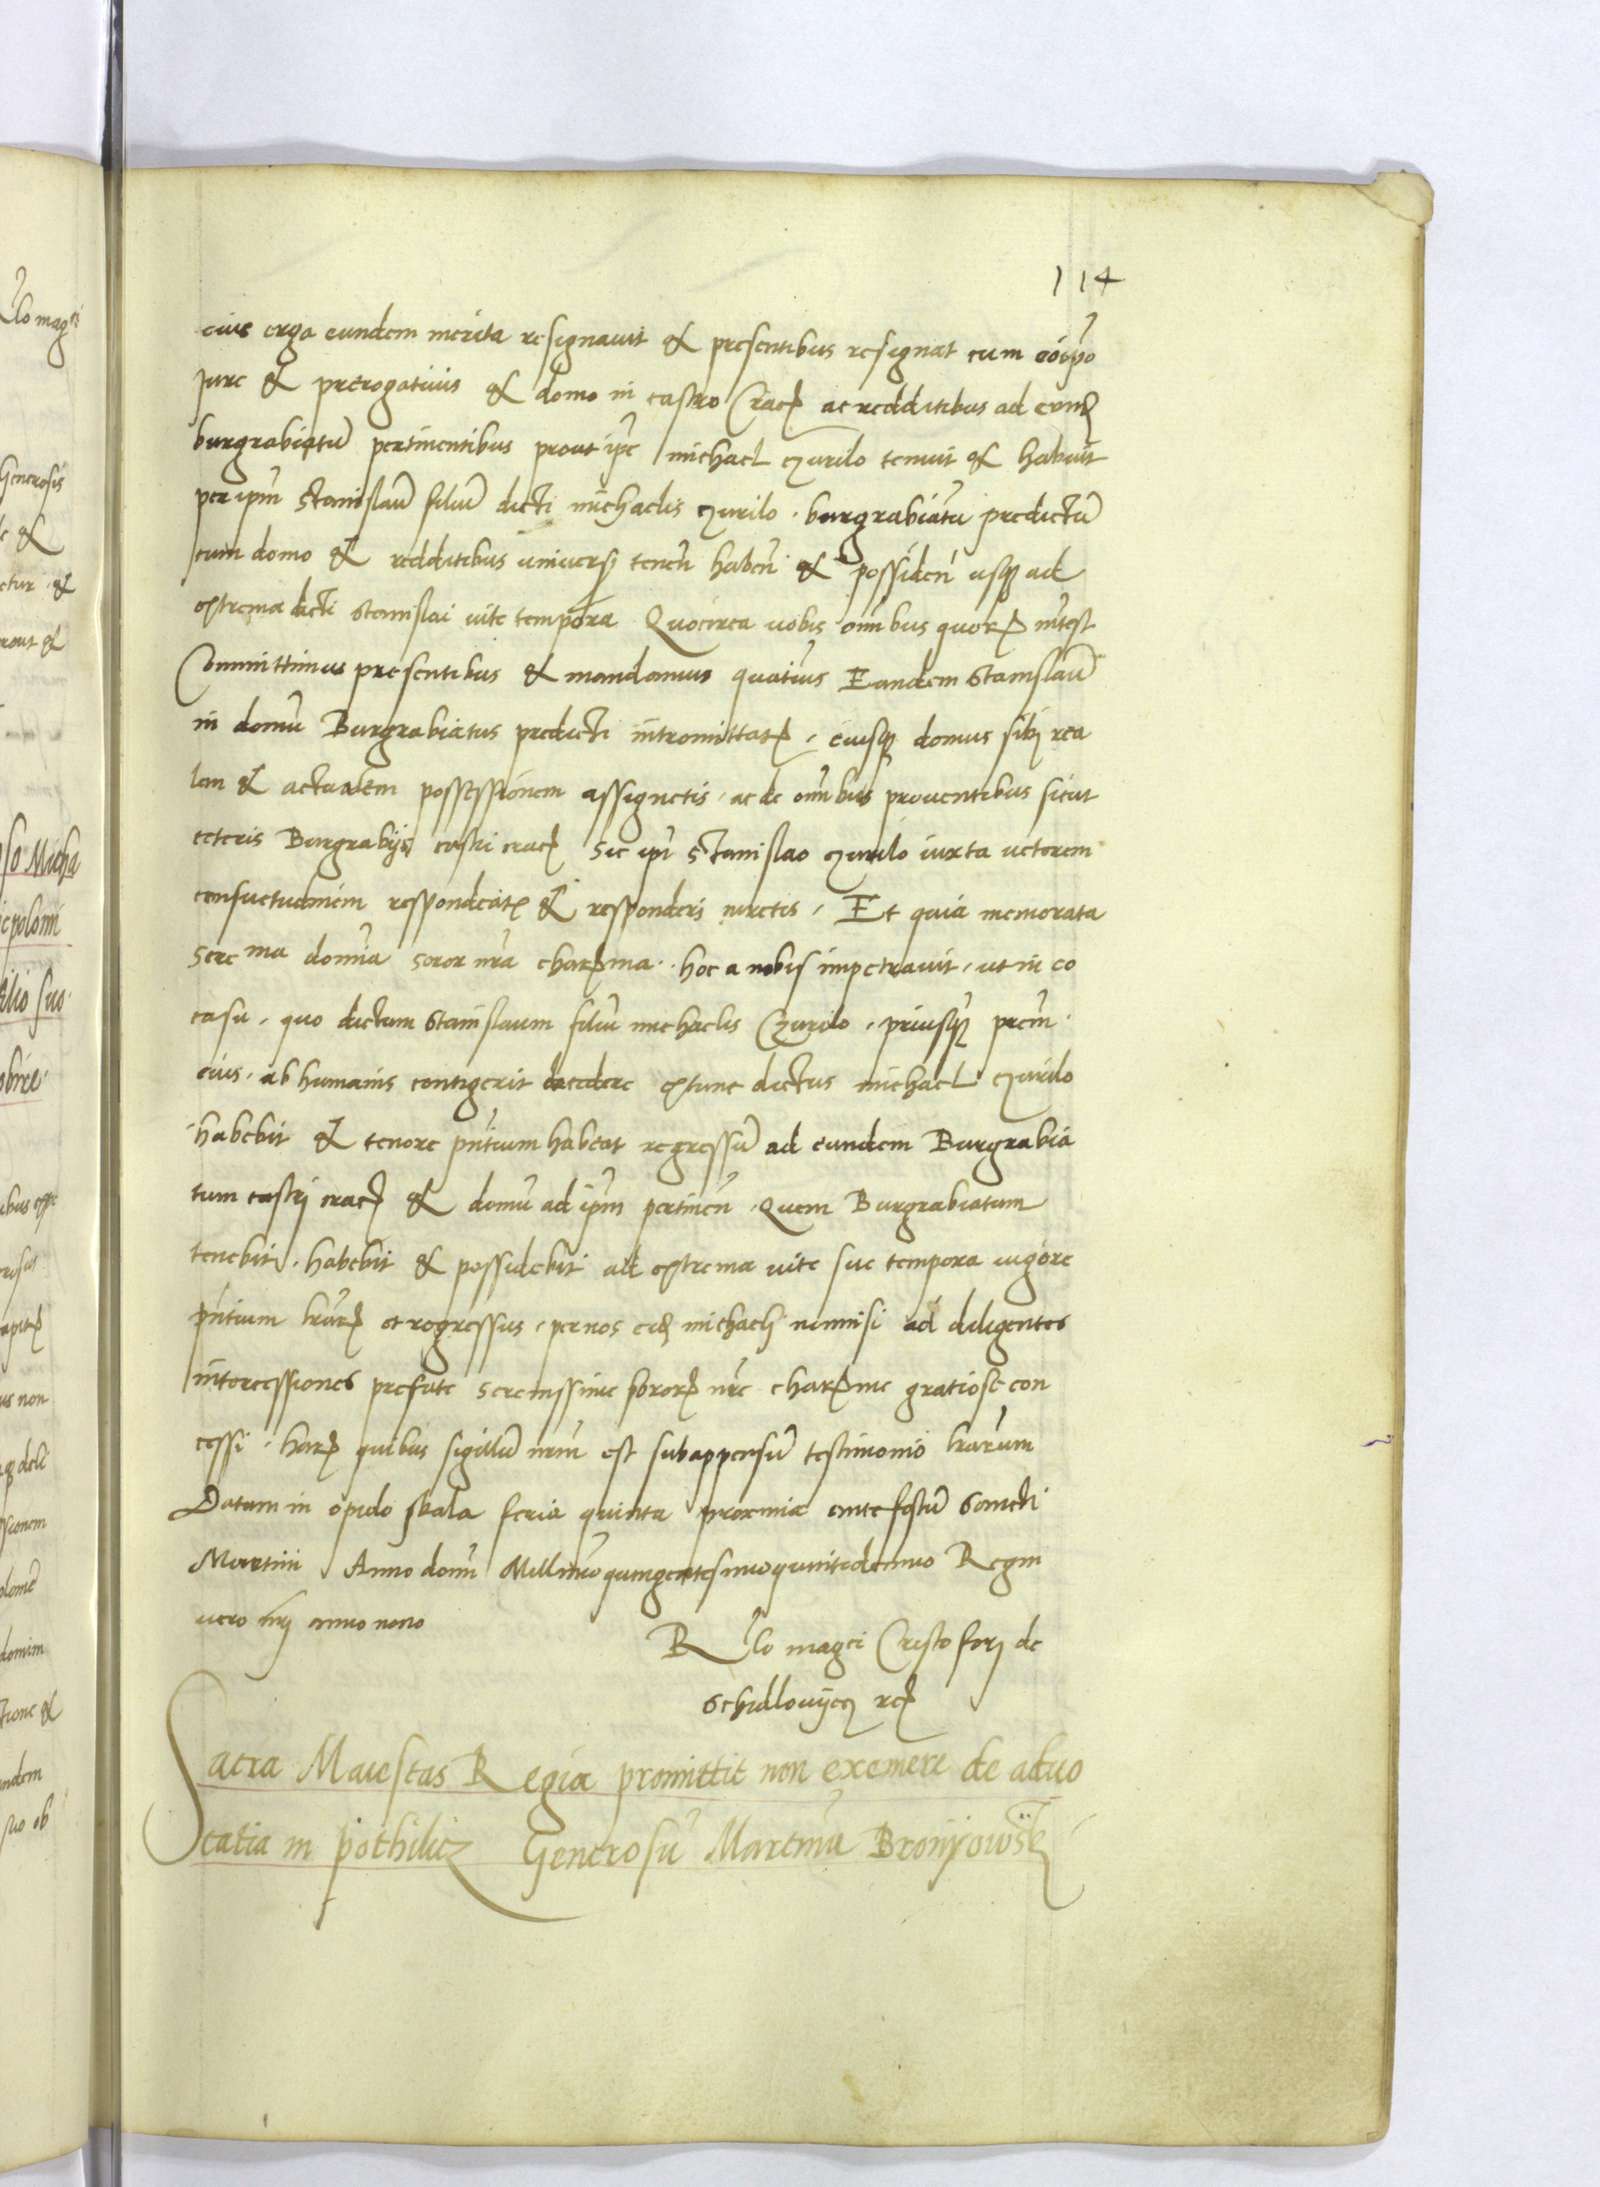 114
eius erga eundem merita resignavit & presentibus resignat cum
jure & prerogativis & domo in castro Crac ac redditibus ad
burgrabiatũ pertinentibus prout ip̃e michael czurilo tenuit & habuit
per ip̃m stanislaũ filiũ dicti michaelis czurilo . burgrabiatũ predictũ
cum domo & redditibus univers tenen̄ haben̄ & possiden̄ usq ad
extrema dicti stanislai vite tempora Quocirca vobis om̃ibus quor int̃est
Committimus presentibus & mandamus quatin̄us Eundem stanislaũ
in domũ Burgrabiatus predicti intromittat , eiusq domus sibi rea
lem & actualem possessionem assignetis . ac de om̃ibus proventibus sicut
ceteris Burgrabijs castri crac Sic ip̃i stanislao czurilo iuxta veterem
consuetudinem respondeat & responderi mretis . Et quia memorata
Sere ma domina soror nr̃a char ma . hoc a nobis impetravit . ut in eo
casu . quo dictum stanislaum filiũ michaelis Czurilo . priusq pr̃em
eius . ab humanis contigerit decedere extunc dictus michael czurilo
habebit & tenore pñtium habeat regressũ ad eundem Burgrabia
tum castri crac & domũ ad ip̃m pertinen̄ . Quem Burgrabiatum
tenebit . habebit & possidebit ad extrema vite sue tempora vigore
pñtium lr̃ar et regressus . per nos eid michaeli nonnisi ad diligentes
intercessiones prefate serenissime soror nr̃e char me gratiose con
cessi . har quibus sigillũ nr̃m est subappensũ testimonio lr̃arum
Datum in opido skala feria quinta proxima ante festũ Sancti
Martini Anno domĩ Millm̃o quingentesimoquintodecimo Regni
vero nr̃i anno nono
R̃lo mag̃ci Cristoferi de
Schidlovijecz
Sacra Maiestas Regia promittit non exemere de advo
catia in pothilicz Generosũ Martinũ Bronijowsk